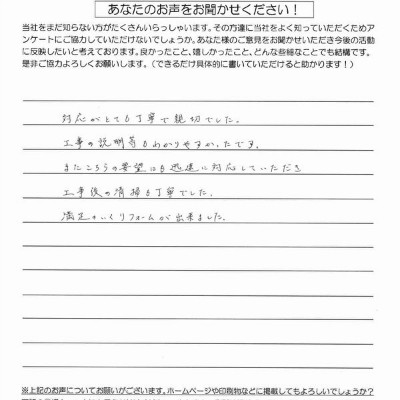 あなたのお声をお聞かせください！
当社をまだ知らない方がたくさんいらっしゃいます。その方達に当社をよく知っていただくためア
ンケートにご協力していただけないでしょうか。あなた様のご意見をお聞かせいただき今後の活動
に反映したいと考えております。良かったこと、嬉しかったこと、どんな些細なことでも結構です。
是非ご協力よろしくお願いします。（できるだけ具体的に書いていただけると助かります！）
対応がとても丁寧で親切でした。
工事の説明等もわかりやすかったです。
またこちらの要望にも迅速に対応していただき
工事後の清掃も丁寧でした。
満足のいくリフォームが出来ました。
※上記のお声についてお願いがございます。ホームページや印刷物などに掲載してもよろしいでしょうか？